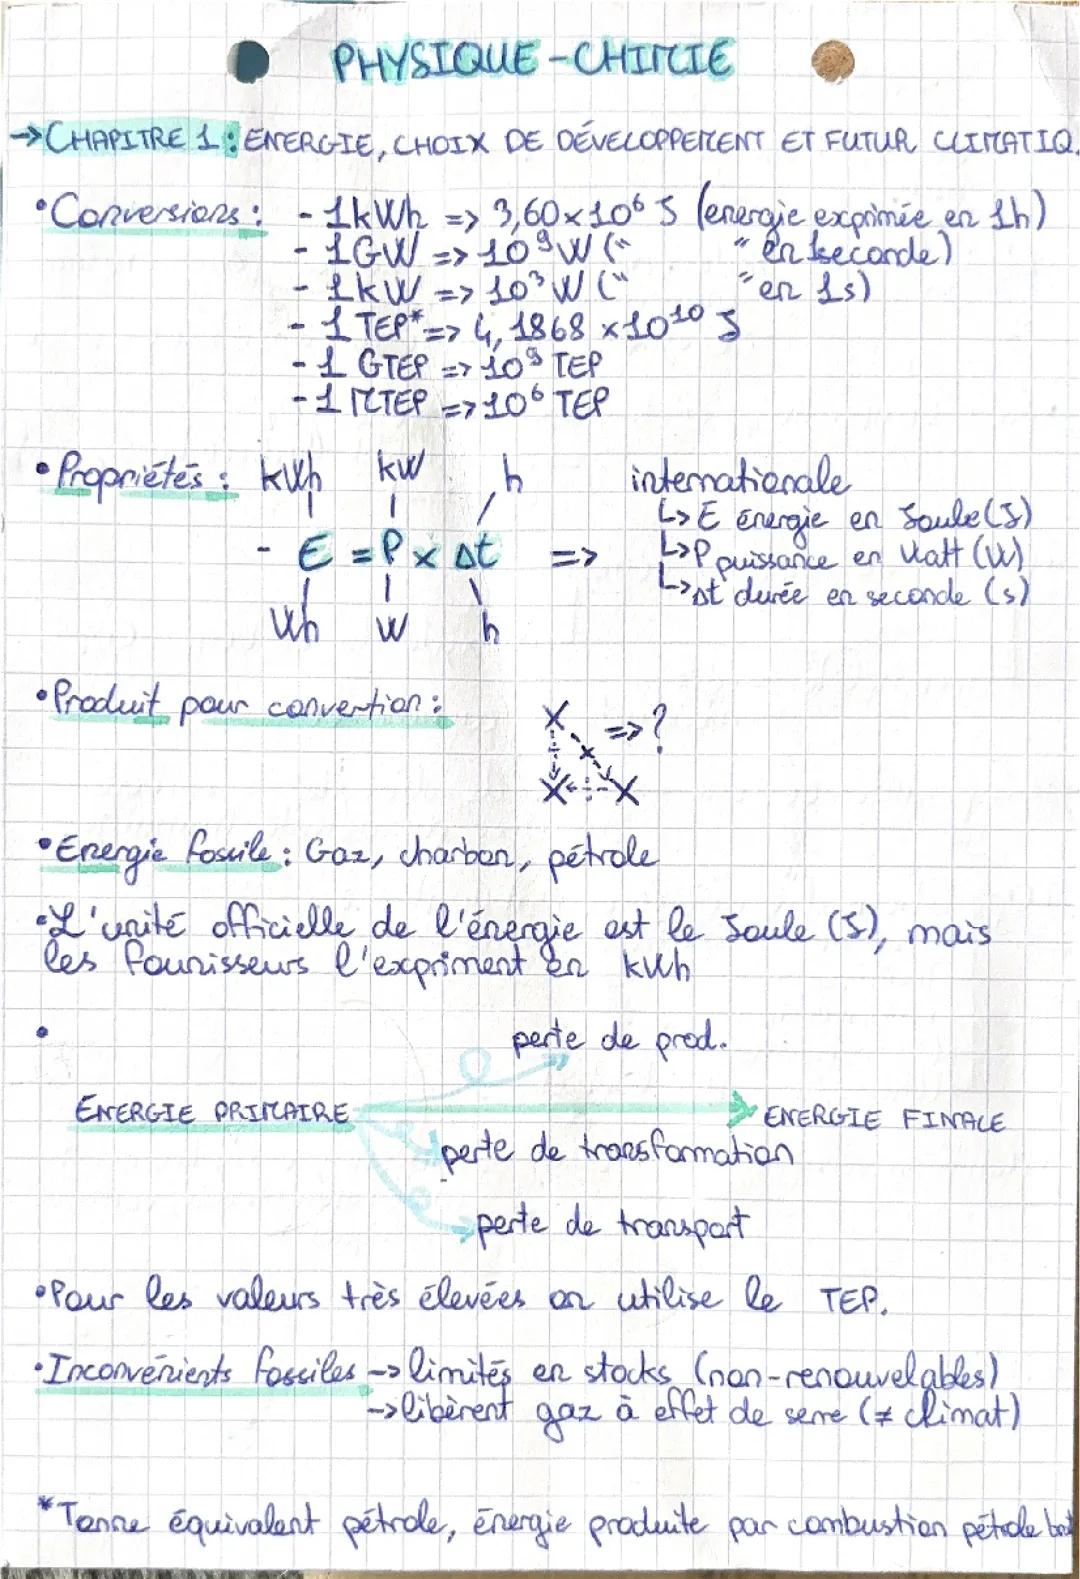 PHYSIQUE-CHIMIE
→CHAPITRE 1 : ENERGIE, CHOIX DE DÉVELOPPEMENT ET FUTUR CLIMATIQ.
•Conversions : - 1kWh => 3,60×10⁶ J (energie exprimée en 1h)
- 1GW => 10⁹ W (" " en 1seconde)
- 1kW => 10³ W (" " en 1s)
- 1 TEP* => 4,1868 ×10¹⁰ J
- 1 GTEP => 10⁹ TEP
- 1 MTEP => 10⁶ TEP
•Propriétés : kWh kW h internationale
↳E énergie en Joule (J)
- E = P × Δt => ↳P puissance en Watt (W)
↳Δt durée en seconde (s)
Wh W h
•Produit pour convertion :
X => ?
X X
•Energie fossile : Gaz, charbon, pétrole
•L'unité officielle de l'énergie est le Joule (J), mais
les founisseurs l'expriment en kWh
• perte de prod.
ENERGIE PRIMAIRE → ENERGIE FINALE
perte de transformation
perte de transport
•Pour les valeurs très élevées on utilise le TEP.
•Inconvénients fossiles → limités en stocks (non-renouvelables)
→libèrent gaz à effet de serre (≠ climat)
*Tonne équivalent pétrole, énergie produite par combustion pétrole brut